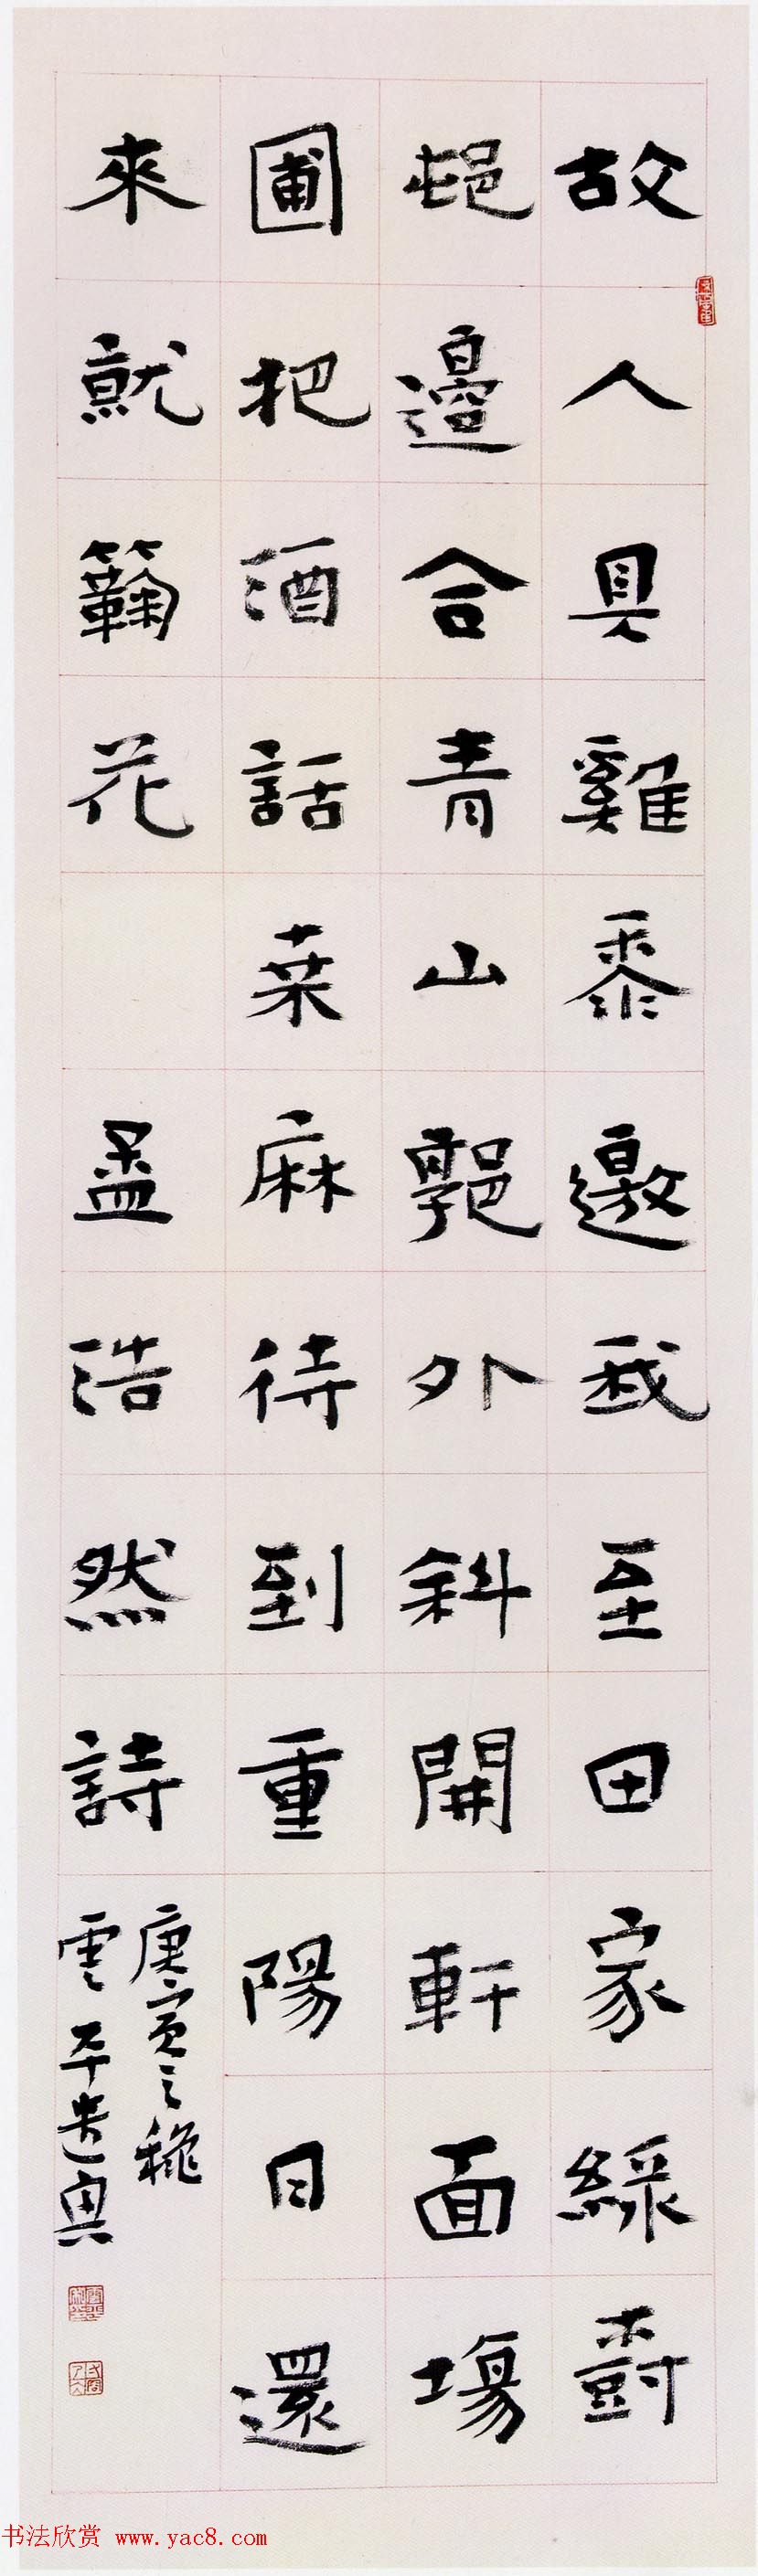 故人具雞黍邀我至田家綠樹
邨邊合青山郭外斜開軒面場
圃把酒話桒麻待到重陽日還
來就蘜花 孟浩然詩
庚寅之穐
雲平
书法欣赏 www.yac8.com